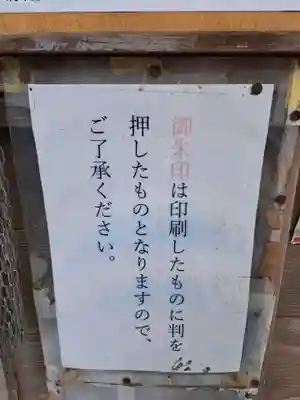 御朱印は印刷したものに判を
押したものとなりますので、
ご了承ください。